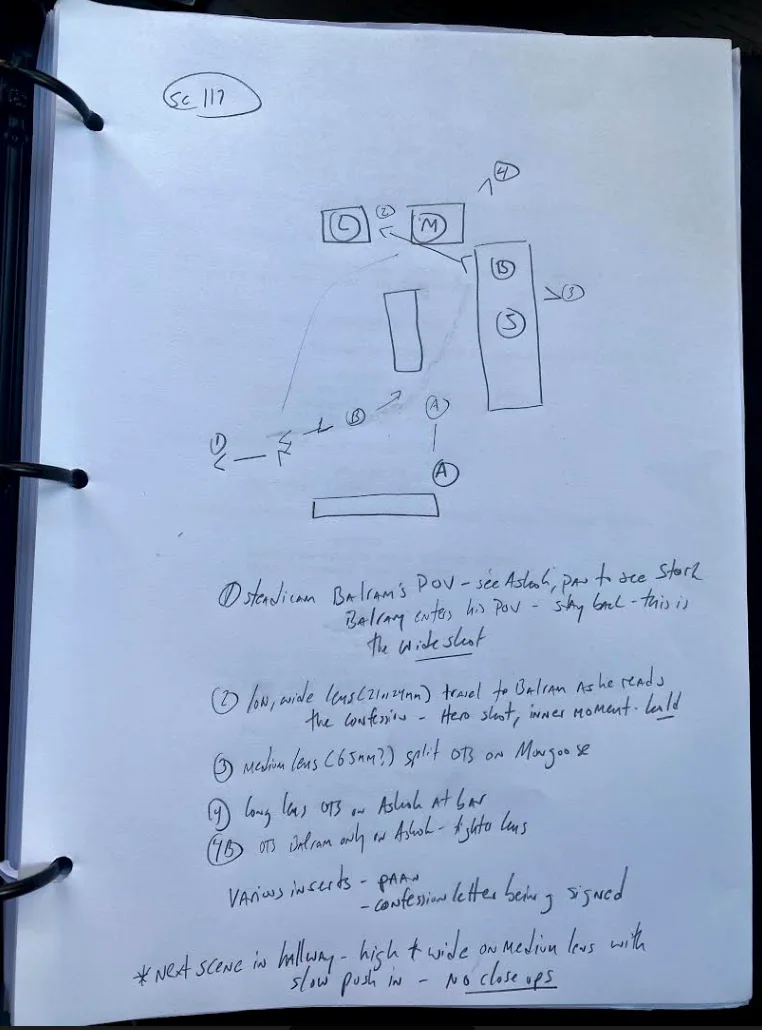 Sc 117
4
L
2
M
B
3
S
B
A
1
A
1 steadicam Balram's POV - see Ashok, pan to see Stork
Balram enters his POV - stay back - this is
the wide shot
2 low, wide lens (21 or 24mm) travel to Balram as he reads
the confession - Hero shot, inner moment - build
3 medium lens (65mm?) split OTS on Mongoose
4 long lens OTS on Ashok at bar
4B OTS Balram only on Ashok - tighter lens
Various inserts - PAAN
- confession letter being signed
* Next scene in hallway - high & wide on medium lens with
slow push in - No close ups